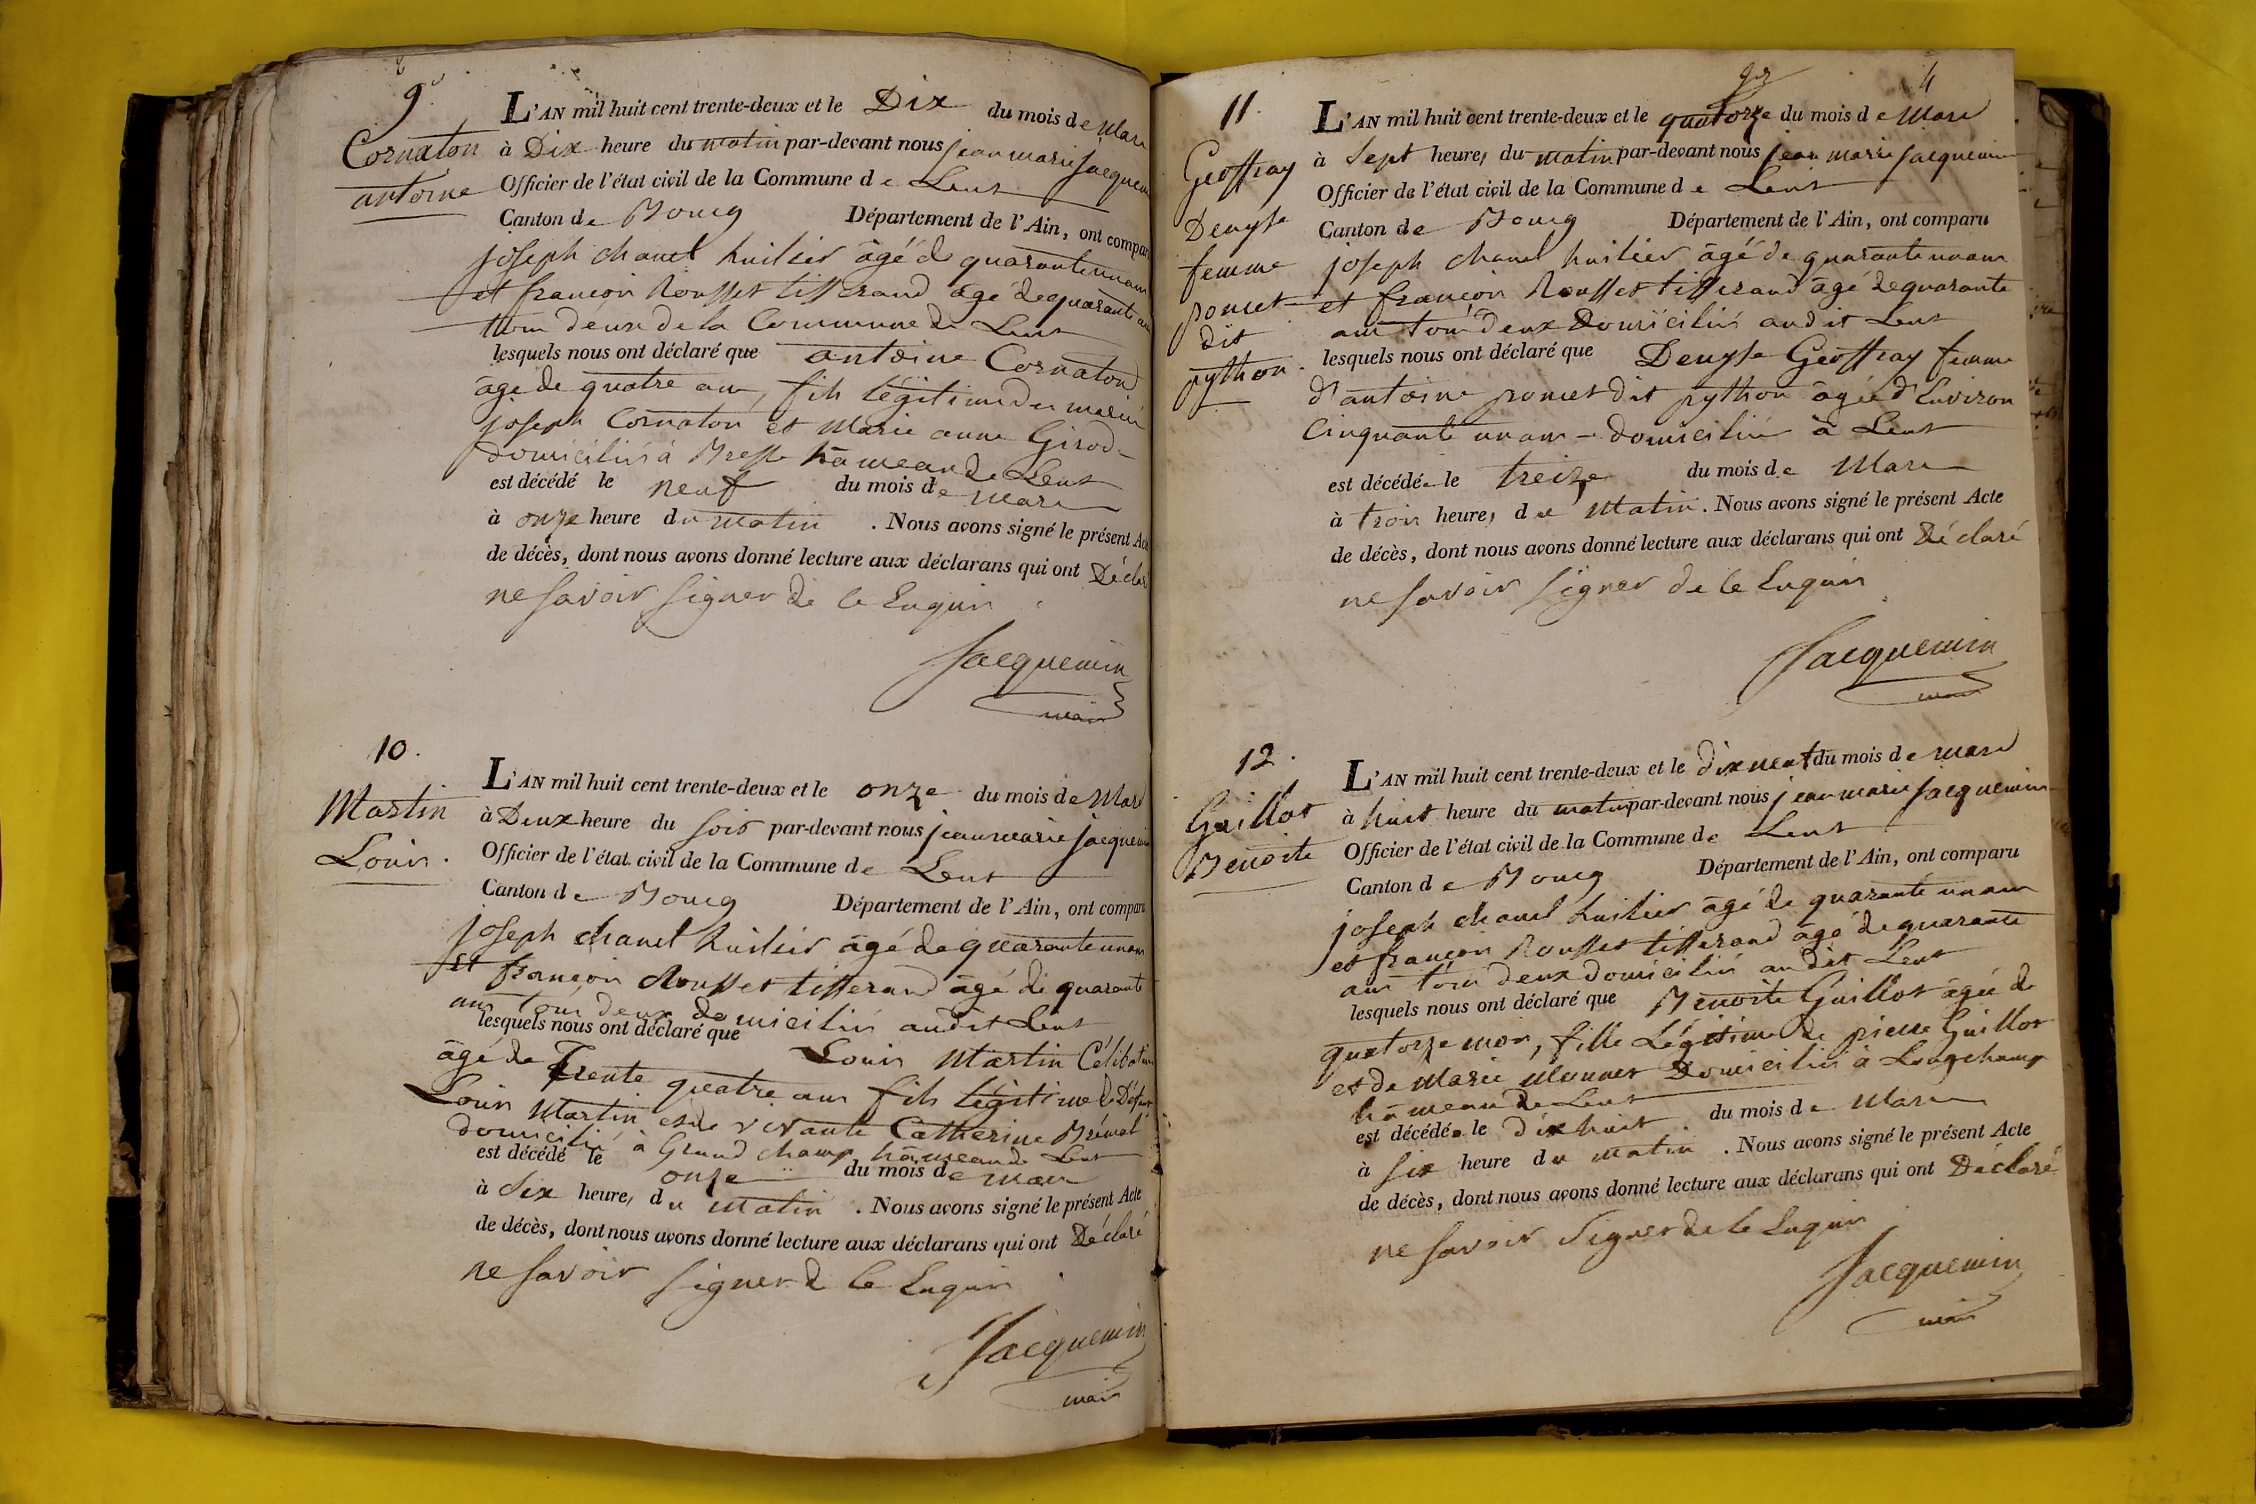 9.
Cornaton
antoine
L'AN mil huit cent trente-deux et le Dix du mois de Mars
à Dix heure du matin par-devant nous jean marie jacquemin
Officier de l'état civil de la Commune de Lent
Canton de Bourg Département de l'Ain, ont comparu
joseph chanel huilier âgé de quarante un ans
et françois Rousset tisserand âgé de quarante ans
tous deux de la Commune de Lent
lesquels nous ont déclaré que antoine Cornaton
âgé de quatre ans, fils légitime des mariés
joseph Cornaton et Marie anne Girod
domiciliés à Bresse hameau de Lent
est décédé le neuf du mois de Mars
à onze heure du matin . Nous avons signé le présent Acte
de décès, dont nous avons donné lecture aux déclarans qui ont Déclaré
ne savoir signer de ce Enquis
Jacquemin
maire
10.
Martin
Louis.
L'AN mil huit cent trente-deux et le onze du mois de Mars
à Deux heure du soir par-devant nous jean marie jacquemin
Officier de l'état civil de la Commune de Lent
Canton de Bourg Département de l'Ain, ont comparu
joseph chanel huilier âgé de quarante un ans
Et françois Rousset tisserand âgé de quarante
ans tous deux domiciliés audit Lent
lesquels nous ont déclaré que Louis Martin Célibataire
âgé de Trente quatre ans fils légitime de Défunt
Louis Martin et de vivante Catherine Brémal
domicilié à Grand champ hameau de Lent
est décédé le onze du mois de mars
à Six heure, du matin . Nous avons signé le présent Acte
de décès, dont nous avons donné lecture aux déclarans qui ont Déclaré
ne savoir signer de ce Enquis
Jacquemin
maire
4
11.
Geoffray
Denyse
femme
poncet
dit
python.
L'AN mil huit cent trente-deux et le quatorze du mois de Mars
à Sept heure, du matin par-devant nous jean marie jacquemin
Officier de l'état civil de la Commune de Lent
Canton de Bourg Département de l'Ain, ont comparu
joseph chanel huilier âgé de quarante un ans
et françois Rousset tisserand âgé de quarante
ans tous deux Domiciliés audit Lent
lesquels nous ont déclaré que Denyse Geoffray femme
d'antoine poncet dit python âgée d'Environ
Cinquante un ans - domiciliée à Lent
est décédée le treize du mois de Mars
à trois heure, du Matin. Nous avons signé le présent Acte
de décès, dont nous avons donné lecture aux déclarans qui ont Déclaré
ne savoir signer de ce Enquis
Jacquemin
maire
12.
Guillot
Benoite
L'AN mil huit cent trente-deux et le dix neuf du mois de mars
à huit heure du matin par-devant nous jean marie jacquemin
Officier de l'état civil de la Commune de Lent
Canton de Bourg Département de l'Ain, ont comparu
joseph chanel huilier âgé de quarante un ans
et françois Rousset tisserand âgé de quarante
ans tous deux domiciliés audit Lent
lesquels nous ont déclaré que Benoite Guillot âgée de
quatorze mois, fille Légitime de pierre Guillot
et de Marie Monnet Domiciliés à Longchamp
hameau de Lent
est décédée le dix huit du mois de Mars
à six heure du matin . Nous avons signé le présent Acte
de décès, dont nous avons donné lecture aux déclarans qui ont Déclaré
ne savoir Signer de ce Enquis
Jacquemin
maire